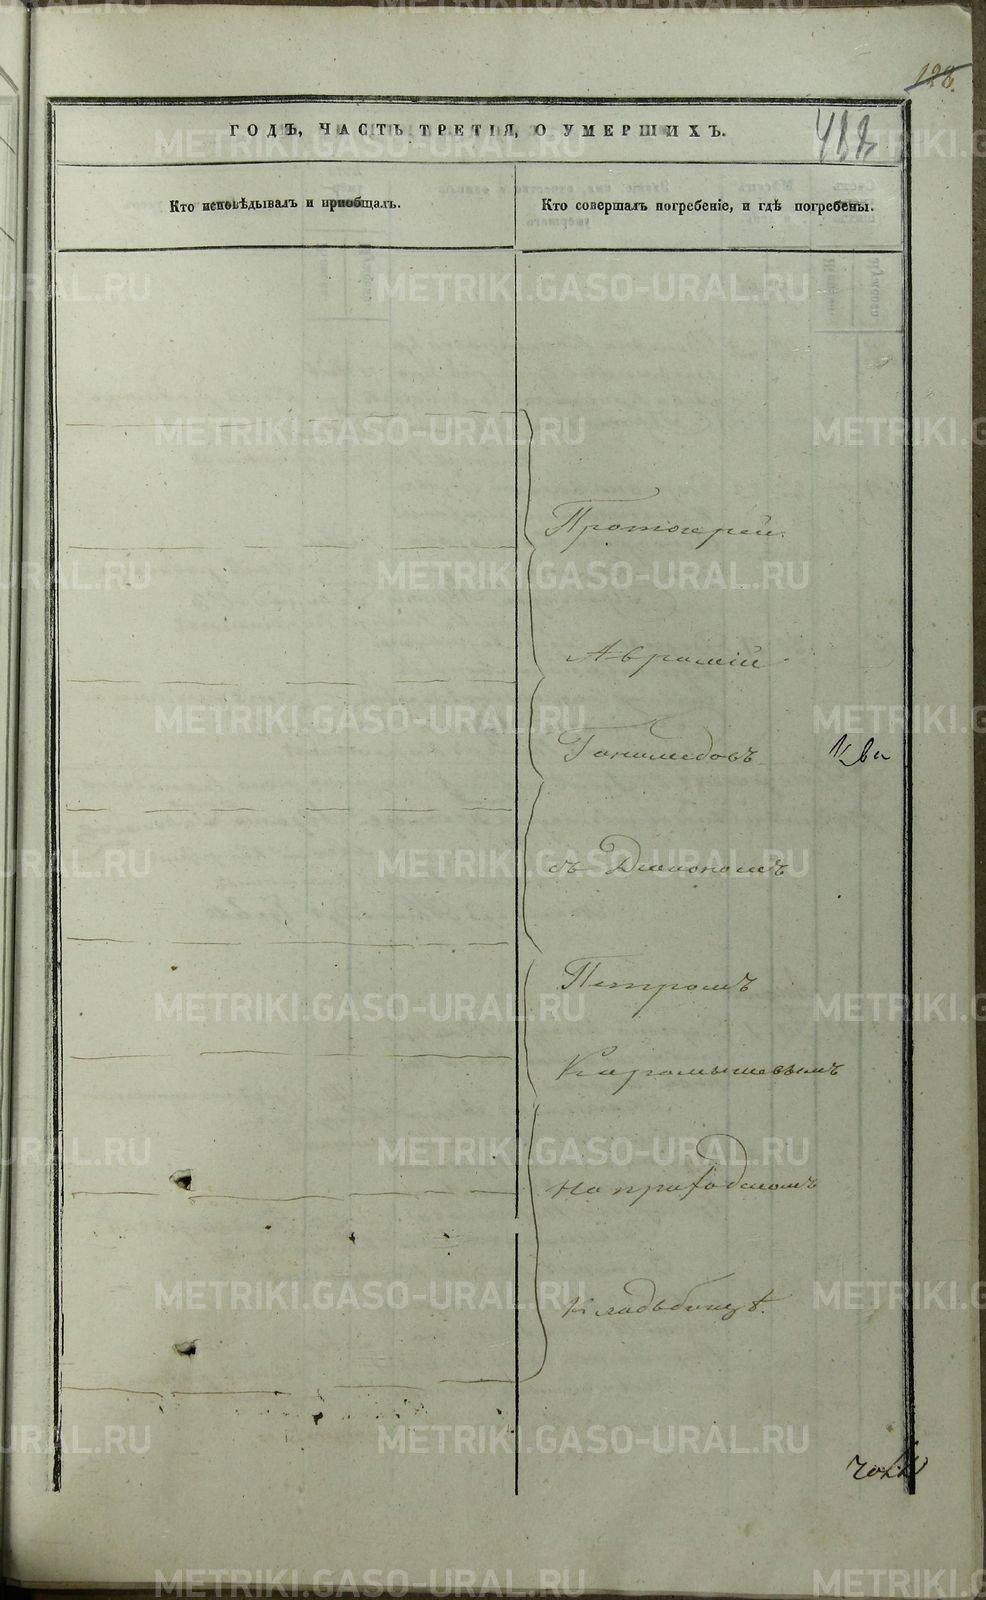 128.
ГОДЪ, ЧАСТЬ ТРЕТІЯ, О УМЕРШИХЪ.
Кто исповѣдывалъ и пріобщалъ.
Кто совершалъ погребеніе, и гдѣ погребены.
Протоіерей
Аврамій
Ганимедовъ
съ Дьякономъ
Петромъ
Карамышевымъ
на приходскомъ
Кладьбищѣ.
METRIKI.GASO-URAL.RU